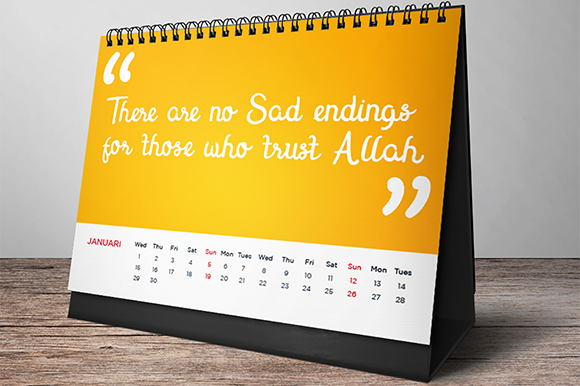 “
There are no Sad endings
for those who trust Allah
”
JANUARI Wed Thu Fri Sat Sun Mon Tues Wed Thu Fri Sat Sun Mon Tues
1 2 3 4 5 6 7 8 9 10 11 12 13 14
15 16 17 18 19 20 21 22 23 24 25 26 27 28
29 30